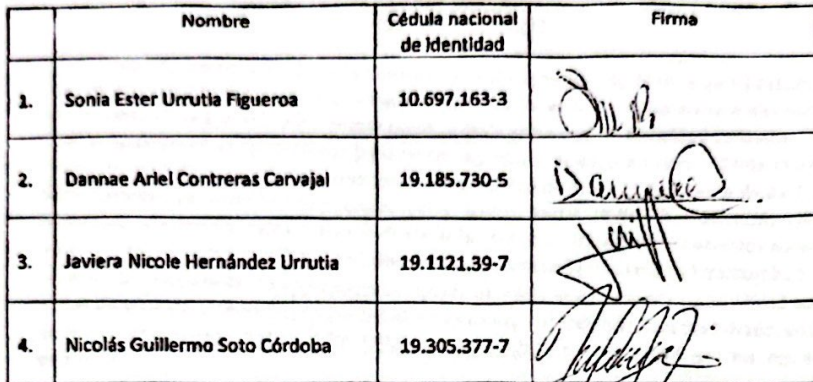 Nombre Cédula nacional de identidad Firma
1. Sonia Ester Urrutia Figueroa 10.697.163-3
2. Dannae Ariel Contreras Carvajal 19.185.730-5
3. Javiera Nicole Hernández Urrutia 19.1121.39-7
4. Nicolás Guillermo Soto Córdoba 19.305.377-7